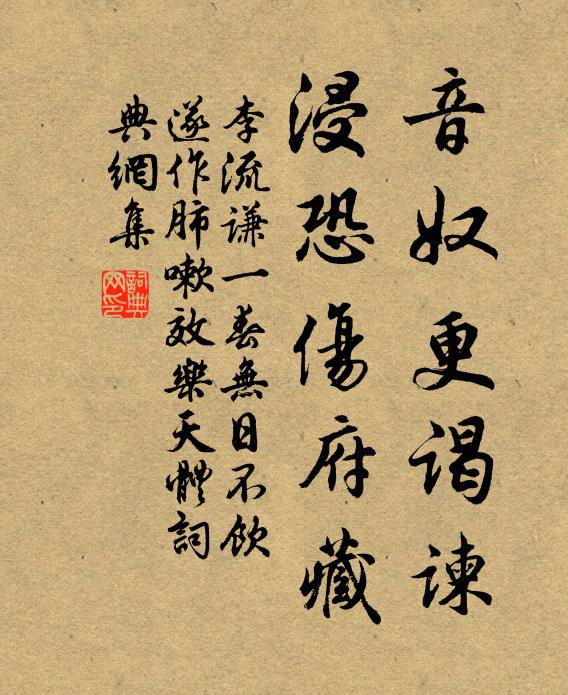 音奴更謁諫
浸恐傷府藏
李流謙一春無日不飲
遂作肺嗽效樂天體詞
典網集
詞典
网印